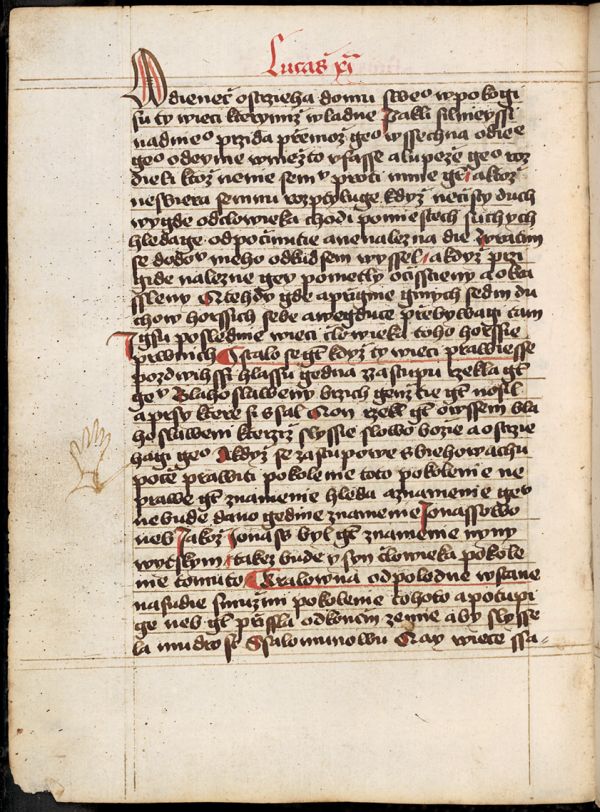 Lucas xi
Odienec ostrzieha domu sweo w pokogi
su ty wieci kterymiz wladne Pakli silnieyssi
nad nieo przida przemoz geo wssechna odie
geo odeyme w niezto ufasse a lupeze geo roz
dieli ktoz nenie semu proti mnie gt a ktoz
nesbiera semnu rozptyluge kdyz necisty duch
wygde od clowieka chodi po miestech suchych
hledage odpocinutie a nenalezna die wratim
se do domu meho odkud sem wyssel a kdyz przi
gide nalezne gey pometly ocisstieny a okra
ssleny A tehdy gde a prigme ginych sedm du
chow horssich sebe a wegduce przebywagi tam
I gsu posledinie wieci clowieka toho horssie
prwnich Stalo se gt kdyz ty wieci prawiesse
pozdwihssi hlassu gedna z zastupu rzekla gt
gey Blahoslaweny brzich genz tie gt nosil
a prsy ktere si ssal A on rzekl gt owssem bla
hoslaweni kterziz slyssie slowo bozie a ostrzie
hagi geo A kdyz se zastupowe sbiehowachu
poce prawiti pokolenie toto pokolenie ne
prawe gt znamenie hleda a znamenie gey
nebude dano gedine znamenie Jonassowo
neb Jakoz Jonass byl gt znamenie nyny
wytskym takez bude y syn clowieka pokole
nie tomuto Kralowna od poledne wstane
na sudie s muzmi pokolenie tohoto a potupi
ge neb gt prissla od koncin zemie aby slysse
la mudrost Ssalomunowu A ay wiece ssa-